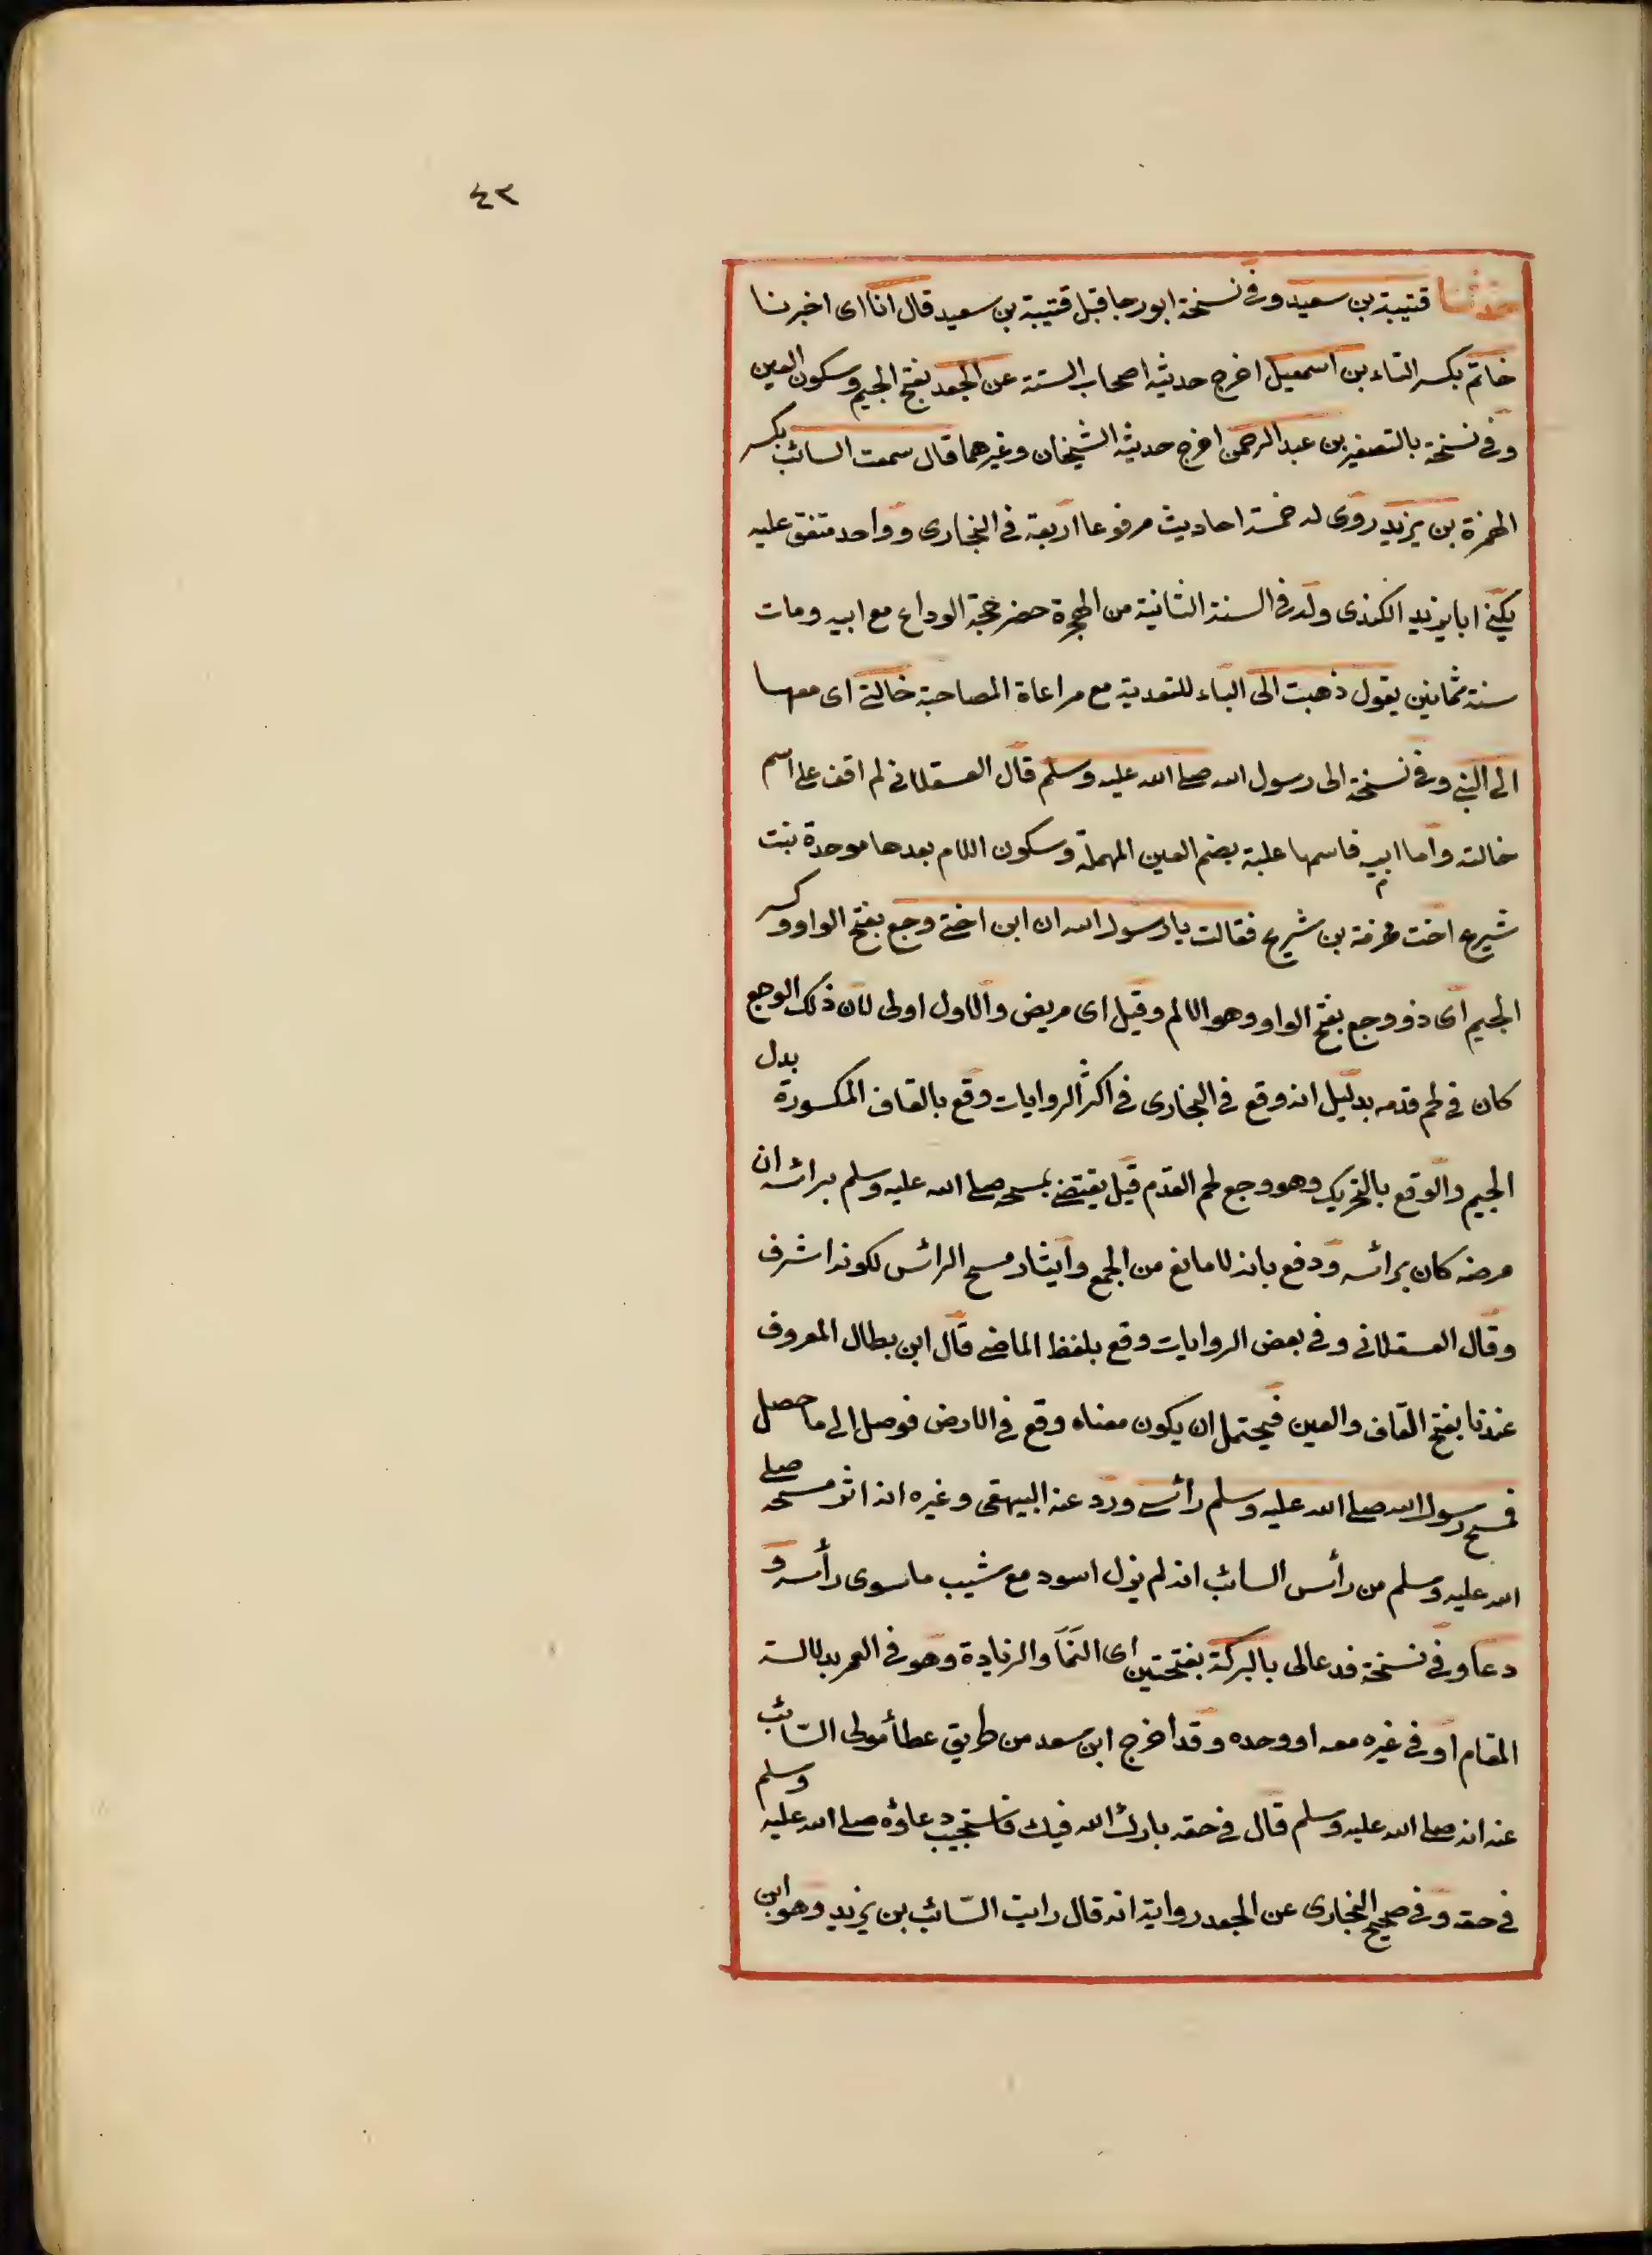 ٤٢
حدثنا قتيبة بن سعيد وفى نسخة ابو رجا قبل قتيبة بن سعيد قال انا اى اخبرنا
حاتم بكسر التاء بن اسمعيل اخرج حديثه اصحاب الستة عن الجعد بفتح الجيم وسكون العين
وفى نسخة بالتصغير بن عبد الرحمن اخرج حديثه الشيخان وغيرهما قال سمعت السائب بكسر
الهمزة بن يزيد روى له خمسة احاديث مرفوعا اربعة فى البخارى وواحد متفق عليه
يكنى ابا يزيد الكندى ولد فى السنة الثانية من الهجرة حضر حجة الوداع مع ابيه ومات
سنة ثمانين يقول ذهبت الى الباء للتعدية مع مراعاة المصاحبة خالتى اى معها
الى النبى وفى نسخة الى رسول الله صلى الله عليه وسلم قال العسقلانى لم اقف على اسم
خالته واما ابيه فاسمها علبة بضم العين المهملة وسكون اللام بعدها موحدة بنت
شريح اخت مخرمة بن شريح فقالت يا رسول الله ان ابن اختى وجع بفتح الواو وكسر
الجيم اى ذو وجع بفتح الواو وهو الالم وقيل اى مريض والاول اولى لان ذلك الوجع
كان فى لحم قدمه بدليل انه وقع فى البخارى فى اكثر الروايات وقع بالقاف المكسورة بدل
الجيم والوقع بالتحريك وهو وجع لحم القدم قيل يقتضى بمسحه صلى الله عليه وسلم برائسه ان
مرضه كان برائسه ودفع بانه لا مانع من الجمع وايثار مسح الرائس لكونه اشرف
وقال العسقلانى وفى بعض الروايات وقع بلفظ الماضى قال ابن بطال المعروف
عندنا بفتح القاف والعين فيحتمل ان يكون معناه وقع فى الارض فوصل الى ما حصل
فمسح رسول الله صلى الله عليه وسلم رائسى ورد عند البيهقى وغيره انه اثر مسحه صلى
الله عليه وسلم من رأس السائب انه لم يزل اسود مع شيب ما سوى رأسه و
دعا وفى نسخة فدعا لى بالبركة بفتحتين اى النماَ والزيادة وهو فى العمر بدلالة
المقام او فى غيره معه او وحده وقد أخرج ابن سعد من طريق عطأ مولى السّائب
عنه انه صلى الله عليه وسلم قال فى حقه بارك الله فيك فاستجيب دعاؤه صلى الله عليه وسلم
فى حقه وفى صحيح البخارى عن الجعد رواية انه قال رايت السّائب بن يزيد وهو ابن